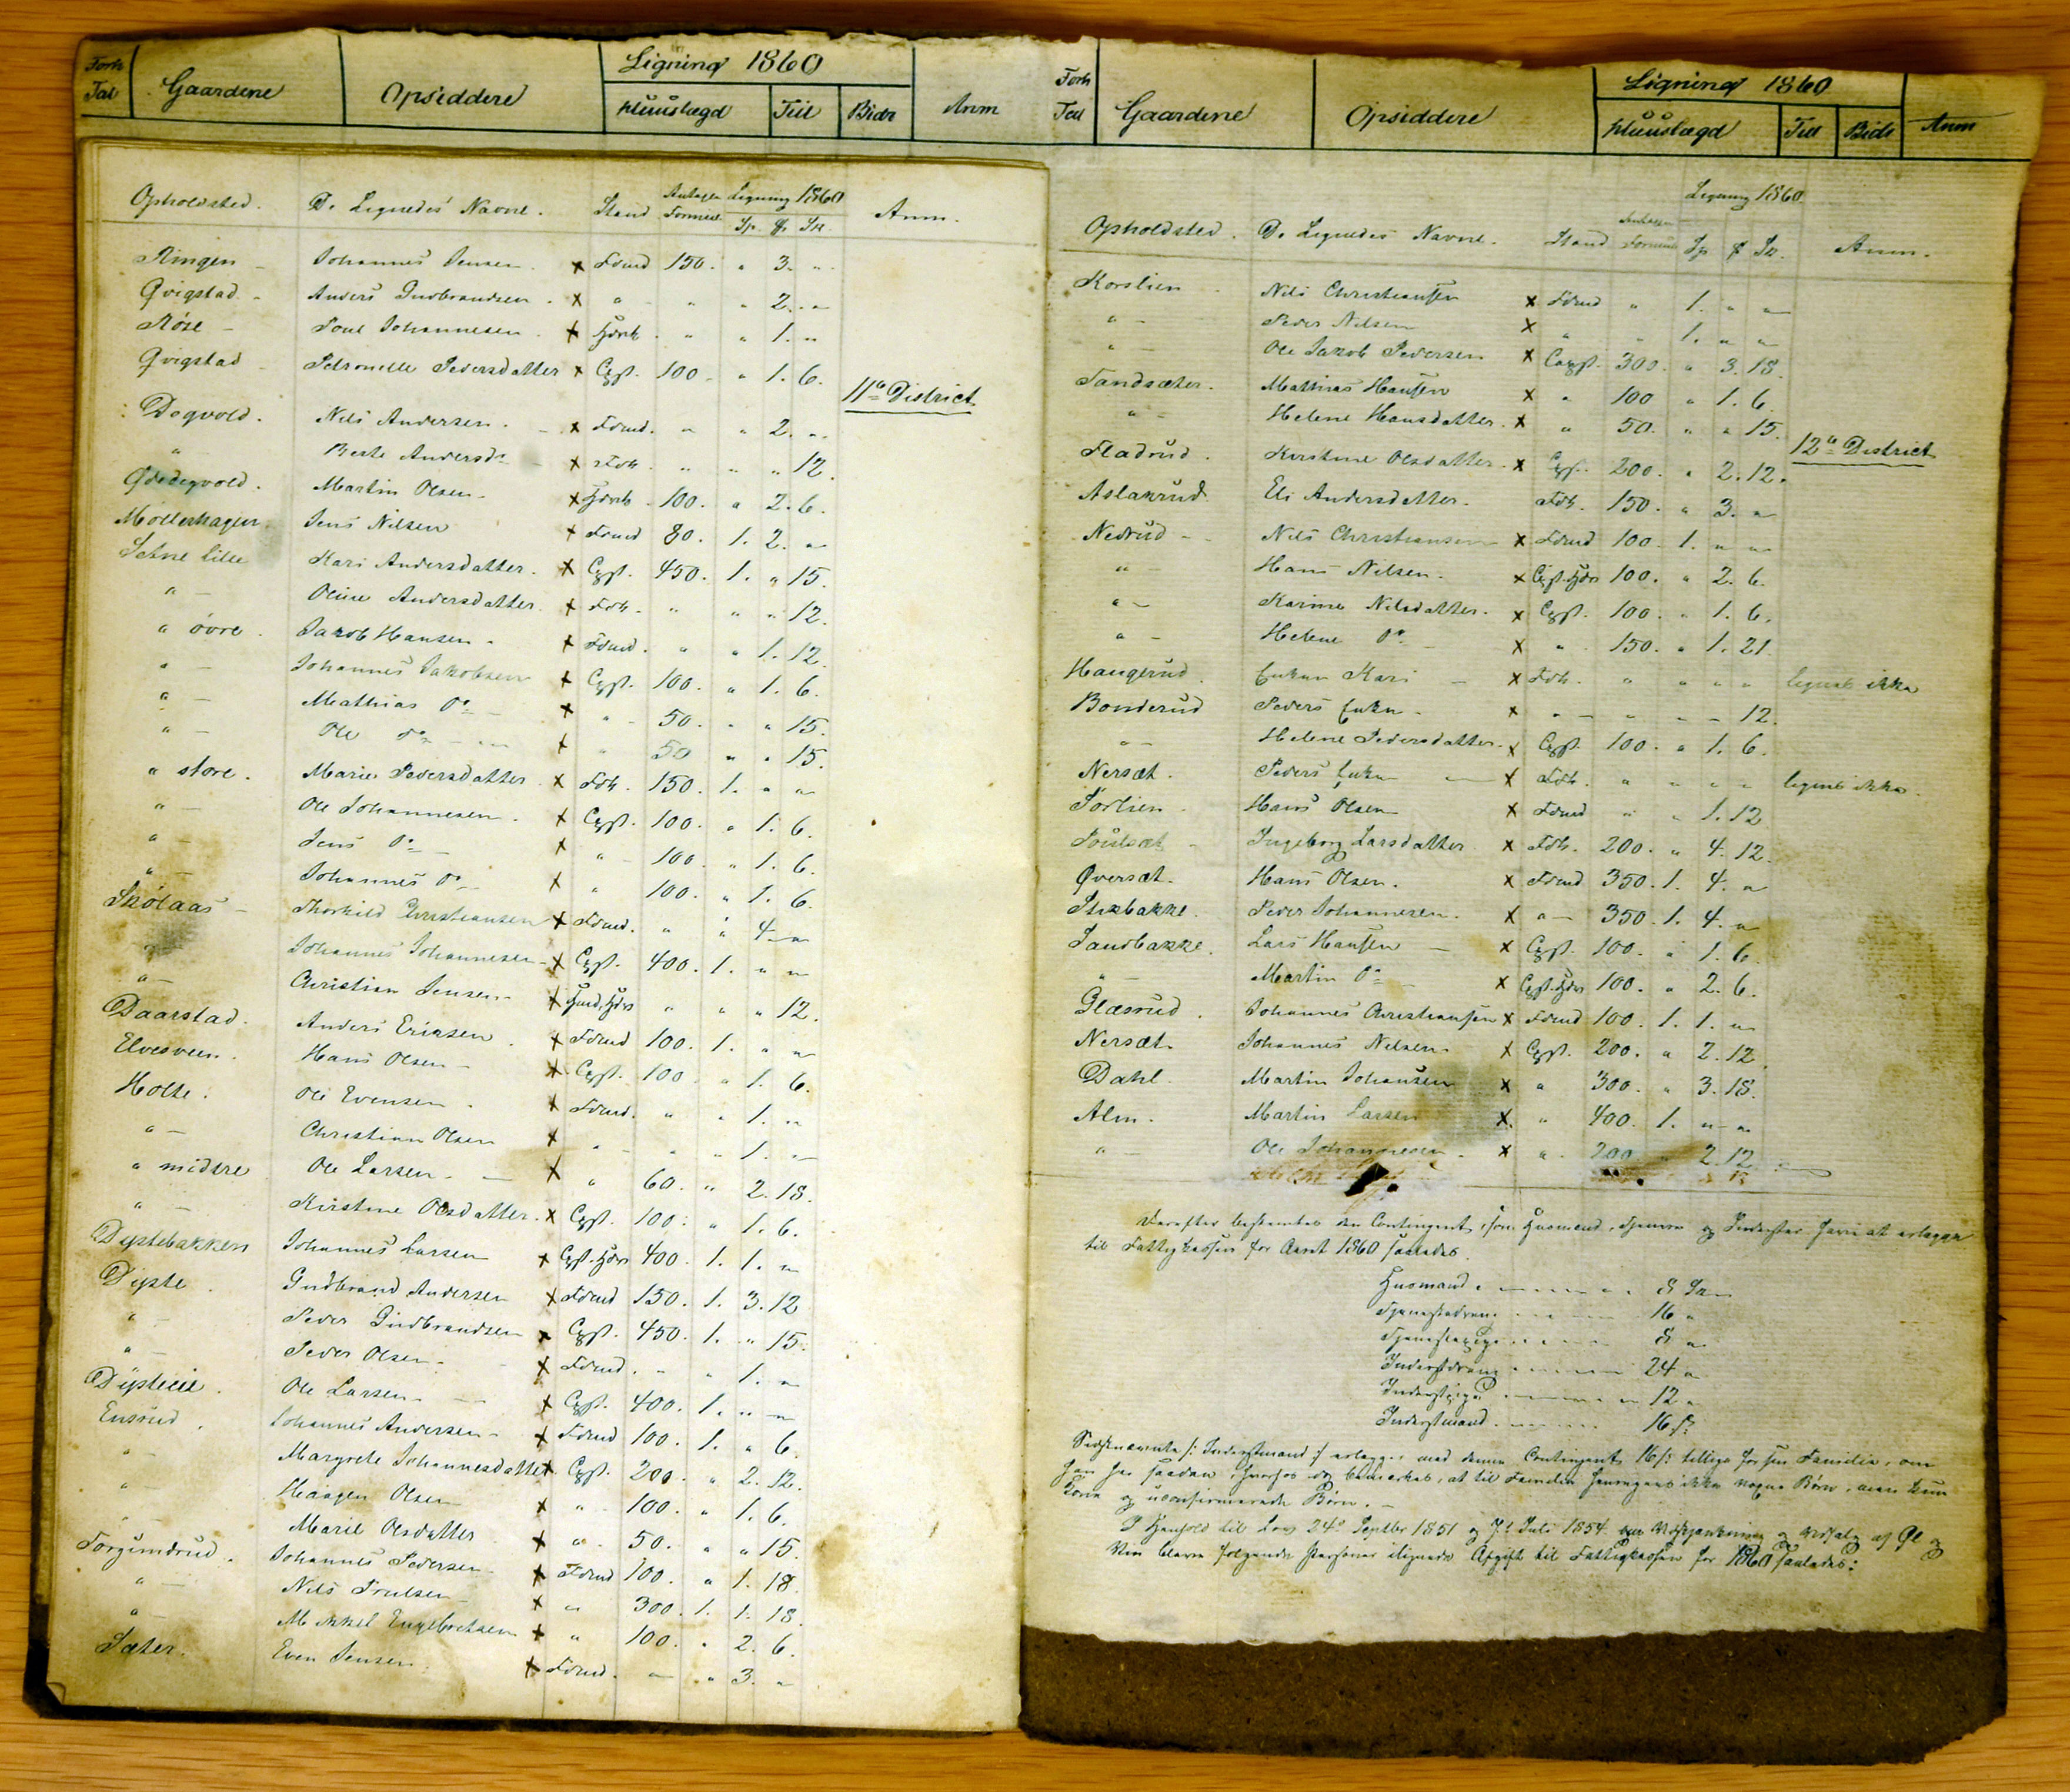 Forh Tal Gaardene Opsiddere Ligning 1860 Huuslægd Till Bidr Anm
Opholdsted. De Lignedes Navne. Stand Antagen Formue Ligning 1860 Sp. Sk. Anm.
Ringen - Johannes Jensen. x Fdmd 150. " 3. "
Qvigstad - Anders Gudbrandsen. x " " " 2. "
Røse - Poul Johannesen. x " " 1. "
Qvigstad - Petronelle Pedersdatter x 100. " 1. 6.
11te District
Degvold. Nils Andersen. x Fdmd. " " 2. "
" Berte Andersd. - x Fdk. " " " 12.
Ødedegvold. Martin Olsen - x 100. " 2. 6.
Mollerhagen Jens Nilsen x Fdmd 80. 1. 2. "
Setne lille Kari Andersdatter. x 450. 1. " 15.
" - Oline Andersdatter. x Fdk. " " " 12.
" övre. Jakob Hansen. x Fdmd. " " 1. 12.
" - Johannes Jakobsen x 100. " 1. 6.
" - Mathias Do - x " 50. " " 15.
" - Ole do - x " 50 " " 15.
" store. Marie Pedersdatter x Fdk. 150. 1. " "
" - Ole Johannesen. x 100. " 1. 6.
" - Jens Do - x " 100. " 1. 6.
" - Johannes Do - x " 100. " 1. 6.
Skølaas - Thorkild Christiansen x Fdmd. " " 4. "
" - Johannes Johannesen - x 400. 1. " "
" - Christian Jensen - x " " " 12.
Daarstad. Anders Eriksen. x Fdmd 100. 1. " "
Elvesveen. Hans Olsen - x 100 " 1. 6.
Holte. Ole Evensen. x Fdmd. " " 1. "
" - Christian Olsen x " " " 1. "
" midtre Ole Larsen. - x " 60. " 2. 18.
" - Kirstine Olsdatter. x 100. " 1. 6.
Dystebakken Johannes Larsen x 400. 1. 1. "
Dyste. Gudbrand Andersen x Fdmd 150. 1. 3. 12
" - Peder Gudbrandsen x 450. 1. " 15.
" - Peder Olsen. x Fdmd. " " 1. "
Dysteeie. Ole Larsen. - x 400. 1. " "
Ensrud. Johannes Andersen - x Fdmd 100. 1. " 6.
" - Margrete Johannesdatter x 200. " 2. 12.
" - Haagen Olsen x " 100. " 1. 6.
" - Marie Olsdatter x " 50. " " 15.
Torgimdrud. Johannes Pedersen. x Fdmd 100. " 1. 18.
" - Nils Poulsen - x " 300. 1. 1. 18.
" - Mikkel Engebretsen x " 100. " 2. 6.
Sæter. Even Jensen. x Fdmd. " " 3. "
Forh Tal Gaardene Opsiddere Ligning 1860 Huuslægd Till Bidr Anm
Opholdsted. De Lignedes Navne. Stand Antagen Formue Ligning 1860 Sp Sk. Anm.
Korslien - Nils Christiansen x Fdmd " 1. " "
" - Peder Nilsen x " " 1. " "
" - Ole Jakob Pedersen x 300. " 3. 18.
Sandsæter. Mathias Hansen x " 100 " 1. 6.
" - Helene Hansdatter. x " 50. " " 15.
12te District
Fladrud. Kirstine Olsdatter. x 200. " 2. 12.
Aslakrud. Eli Andersdatter. Fdk. 150. " 3. "
Nedrud - Nils Christiansen x Fdmd 100 1. " "
" - Hans Nilsen. x 100. " 2. 6.
" - Karine Nilsdatter. x 100. " 1. 6.
" - Helene Do - x " 150. " 1. 21.
Haugerud. Enken Kari - x Fdk. " " " " lignes ikke
Bonderud Peders Enke - x " " " " 12.
" - Helene Pedersdatter. x 100. " 1. 6.
Nersæt. Peders Enke - x Fdk. " " " " lignes ikke.
Sørlien - Hans Olsen x Fdmd " " 1. 12
Ingeborg Larsdatter x Fdk. 200. " 4. 12.
Øversæt. Hans Olsen. x Fdmd 350. 1. 4. "
Stubakke. Peder Johannesen. x " 350. 1. 4. "
Sandbakke. Lars Hansen - x 100. " 1. 6.
" - Martin Do - x 100. " 2. 6.
Glæsrud. Johannes Christiansen x Fdmd 100. 1. 1. "
Nersæt. Johannes Nilsen. x 200. " 2. 12.
Dahl. Martin Johansen x " 300. " 3. 18.
Alm. Martin Larsen x. " 400. 1. " "
" - Ole Johannesen. x " 200 " 2. 12
Derefter bestemtes den Contingent, som Huusmænd, Tjenere og Inderster have at erlægge
til Fattigkassen for Aaret 1860 saaledes.
Huusmænd. 8 Sk
Tjenestedreng 16 "
Tjenestepige 8 "
Inderstdreng 24 "
Inderstpige 12 "
Inderstmand 16 ß:
Sidstnævnte /: Inderstmænd :/ erlægger med denne Contingent 16 ß: tillige for sin Familie, om
han har saadan, hvorhos det bemærkes, at til Familien henregnes ikke voxne Børn, men kun
Kone og uconfirmerede Børn. -
I Henhold til Lov 24de Septbr 1851 og Juli 1854 om Udskjænkning og Udsalg af Øl og
Viin bleve følgende Personer ilignede Afgift til Fattigkassen for 1860 saaledes: